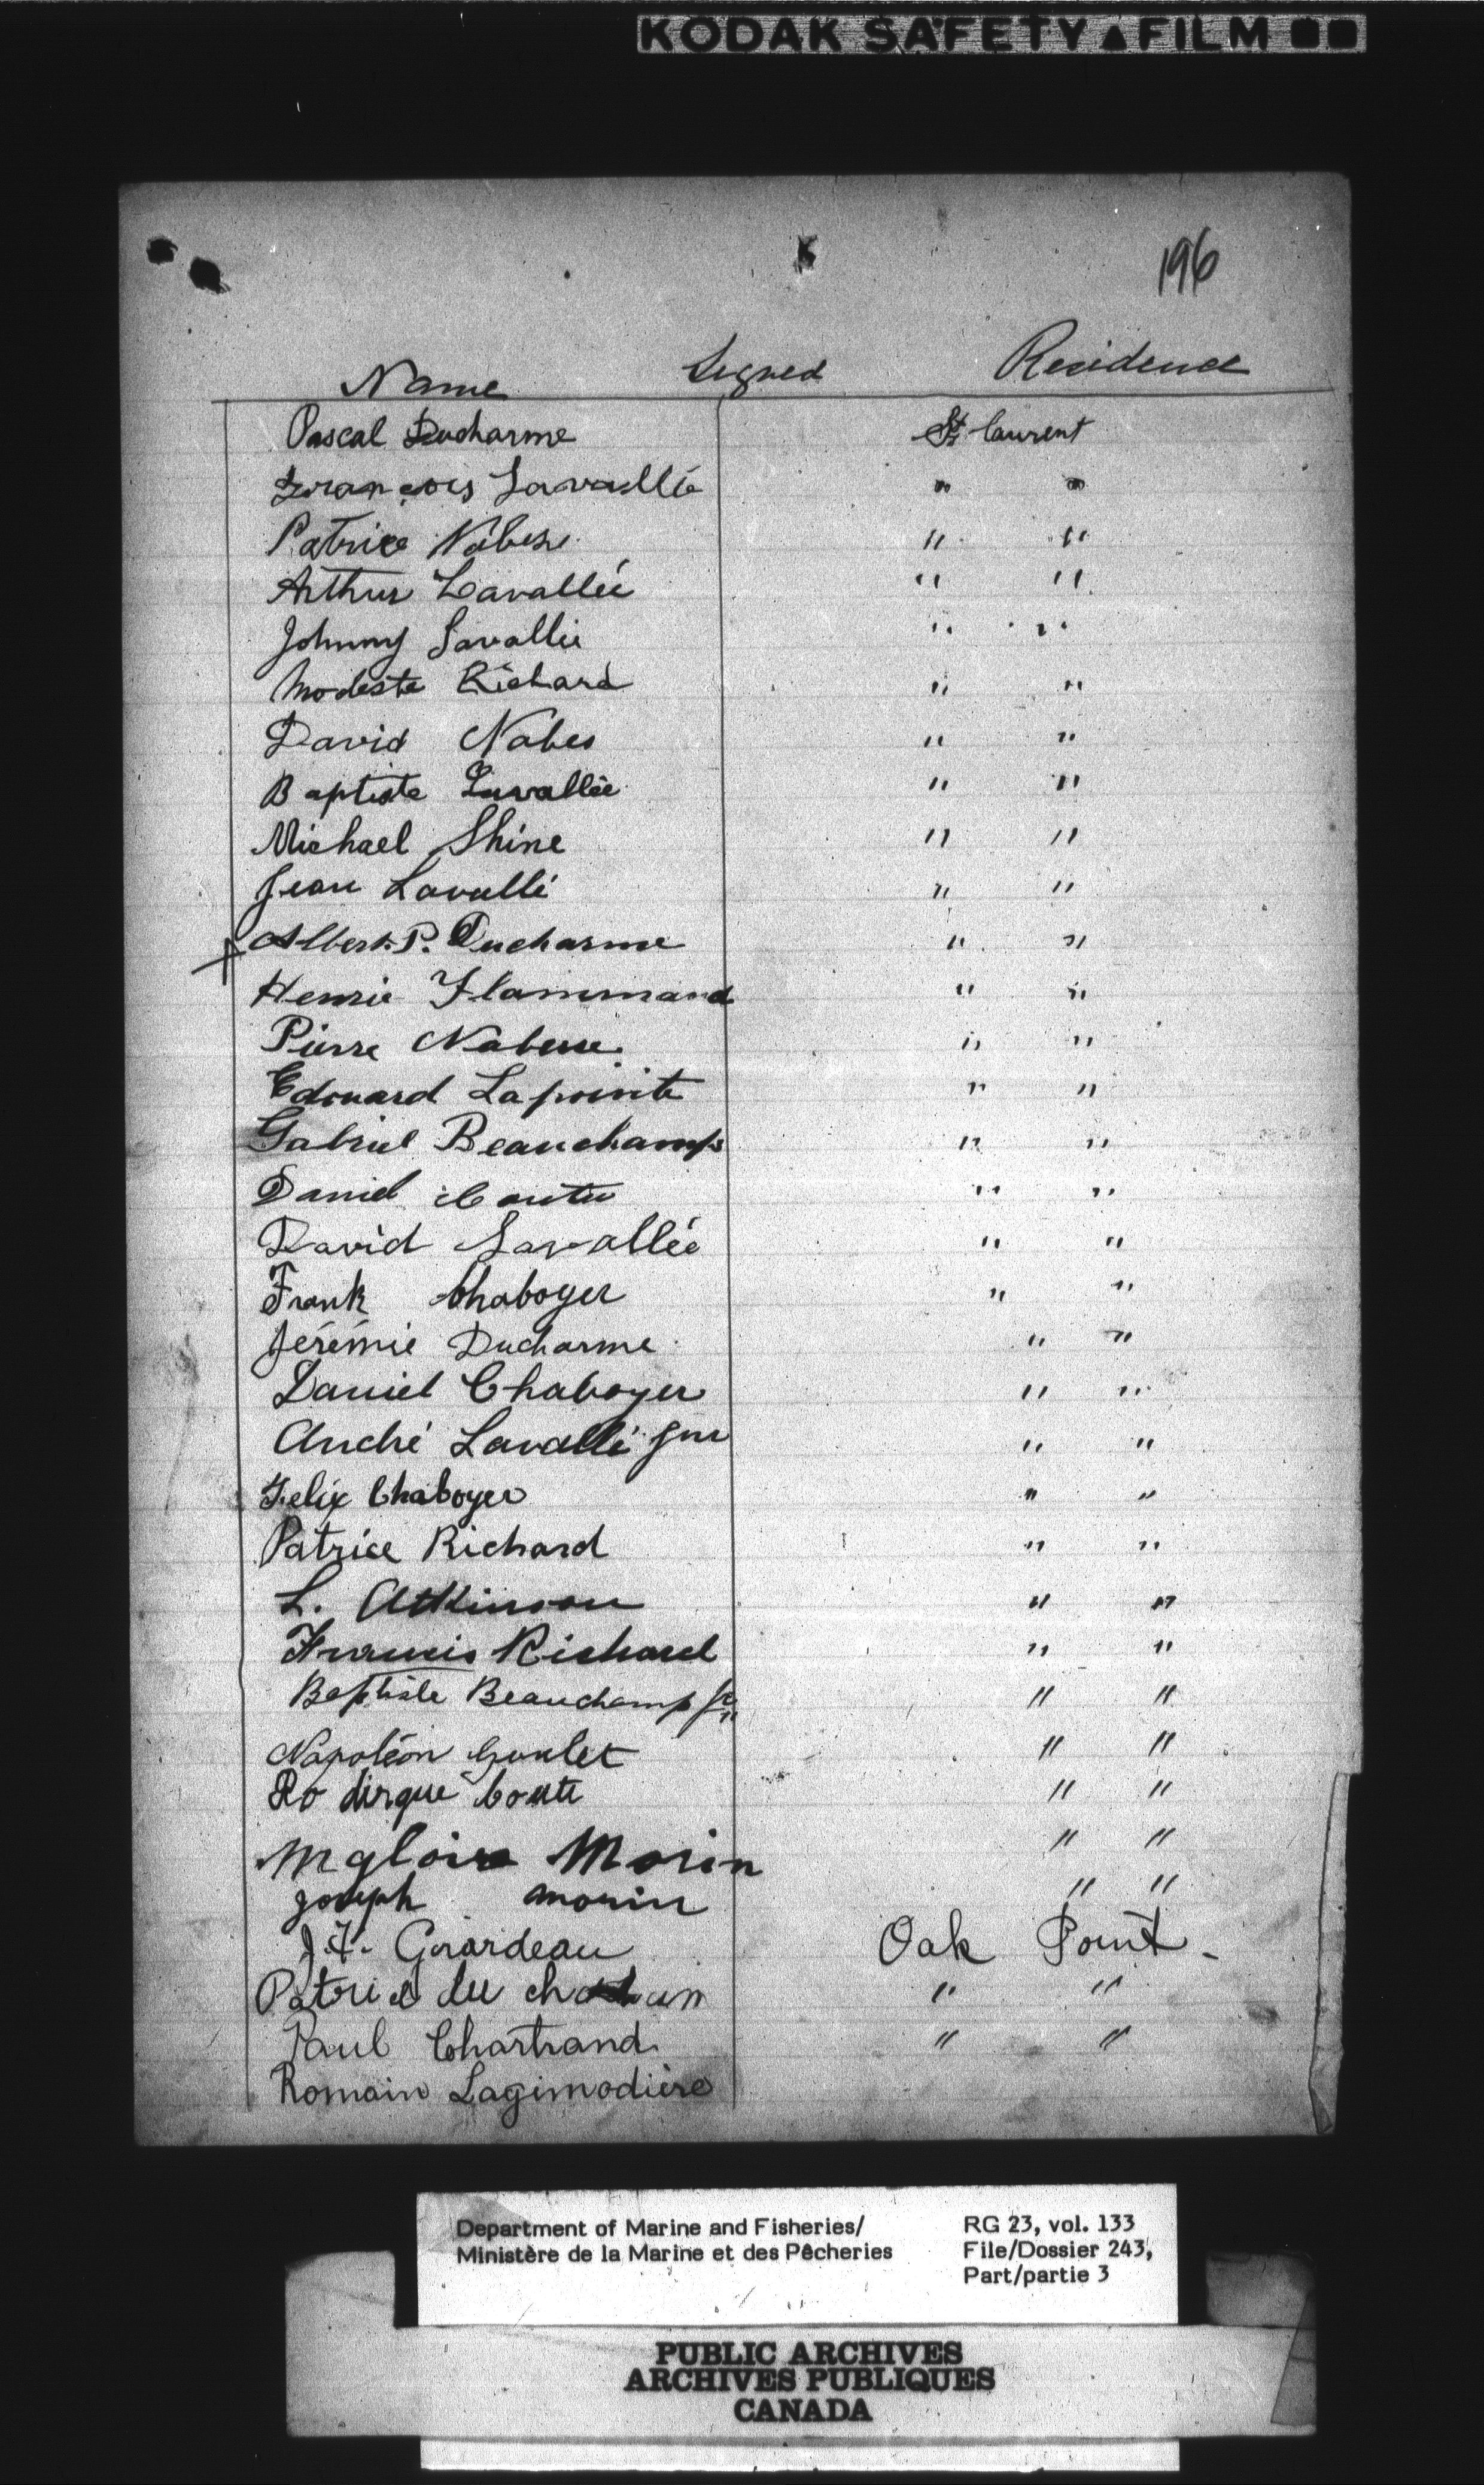 KODAK SAFETY ▲ FILM
196
Name Signed Residence
Pascal Ducharme St. Laurent
François Lavallée " "
Patrice Nabess " "
Arthur Lavallée " "
Johnny Lavallée " "
Modeste Richard " "
David Nabes " "
Baptiste Lavallée " "
Michael Shine " "
Jean Lavallé " "
Albert P. Ducharme " "
Henrie Flammand " "
Pierre Nabesse " "
Edouard Lapointe " "
Gabriel Beauchamps " "
Daniel " "
David Lavallée " "
Frank Chaboyer " "
Jérémie Ducharme " "
Daniel Chaboyer " "
André Lavallé Jnr " "
Felix Chaboyer " "
Patrice Richard " "
L. Atkinson " "
Francis Richard " "
Baptiste Beauchamp Jr " "
Napoléon Goulet " "
Ro dirque Coutu " "
Mgloire Morin " "
Joseph Morin " "
J.F. Girardeau Oak Point -
du " "
Paul Chartrand " "
Romain Lagimodière
Department of Marine and Fisheries/ RG 23, vol. 133
Ministère de la Marine et des Pêcheries File/Dossier 243,
Part/partie 3
PUBLIC ARCHIVES
ARCHIVES PUBLIQUES
CANADA